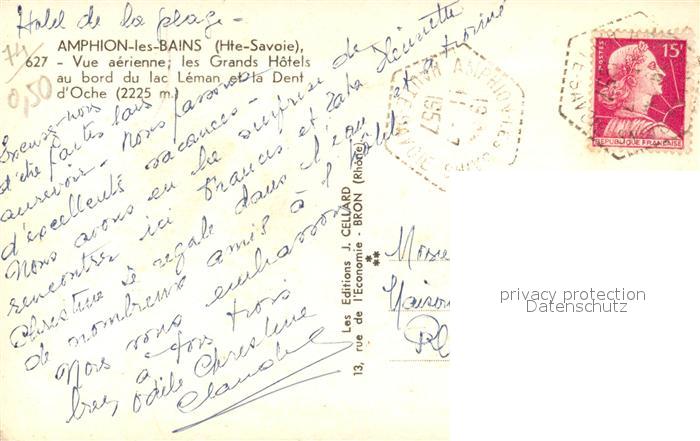 Hotel de la plage -
74
0,50
AMPHION-les-BAINS (Hte-Savoie),
627 - Vue aérienne; les Grands Hôtels
au bord du lac Léman et la Dent
d'Oche (2225 m.)
Excusez-nous
d'être partis sans
aurevoir - Nous passons
d'excellentes vacances -
Nous avons eu la surprise de
rencontrer ici Francis et Tata Henriette
Christine se régale dans l'eau et
de nombreux amis à l'hôtel
Nous vous embrassons
bien à tous trois
Odile Christine
Claude
13, rue Les Editions J. CELLARD
de l'Economie - BRON (Rhône)
AMPHION-LES-BAINS
18
11-7
1957
HAUTE SAVOIE
POSTES
15F
REPUBLIQUE FRANÇAISE
Maison
privacy protection
Datenschutz